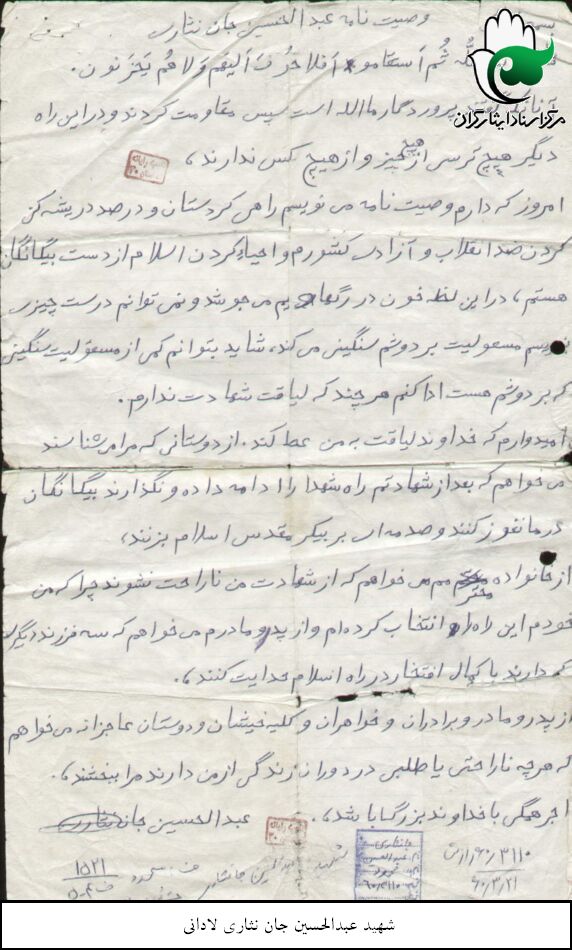 وصیت نامه عبدالحسین جان نثاری
ثُم اَستقامو اَفلا خَرُفَ اَلیهُم وَلا هُم یَحزَنون.
مرکز اسناد ایثارگران
پروردگار ما الله است سپس مقاومت کردند و در این راه
دیگر هیچ ترسی از هیچ چیز و از هیچ کس ندارند،
امروز که دارم وصیت نامه می نویسم راهی کردستان و در صدد ریشه کن
کردن ضد انقلاب و آزادی کشورم و احیاء کردن اسلام از دست بیگانگان
هستم، در این لحظه خون در رگهایم می جوشد و نمی توانم درست چیزی
بنویسم مسعولیت بر دوشم سنگینی می کند، شاید بتوانم کمی از مسعولیت سنگینی
که بر دوشم هست ادا کنم هر چند که لیاقت شهادت ندارم.
امیدوارم که خداوند لیاقت به من عطا کند. از دوستانی که مرا می شناسند
می خواهم که بعد از شهادتم راه شهدا را ادامه داده و نگذارند بیگانگان
در ما نفوز کنند و صدمه ای بر پیکر مقدس اسلام بزنند،
از خانواده محترمم می خواهم که از شهادت من ناراحت نشوند چرا که من
خودم این راه را انتخاب کرده ام و از پدر و مادرم می خواهم که سه فرزند دیگری
که دارند با کمال افتخار در راه اسلام هدایت کنند،.
از پدر و مادر و برادران و خواهران و کلیه خیشان و دوستان عاجزانه می خواهم
که هر چه ناراحتی یا طلبی در دوران زندگی از من دارند مرا ببخشند،.
اجر همگی با خداوند بزرگ باشد،. عبدالحسین جان نثاری
۶۰/۳/۲۱
۱۵۲۱
شهید عبدالحسین جان نثاری لادانی